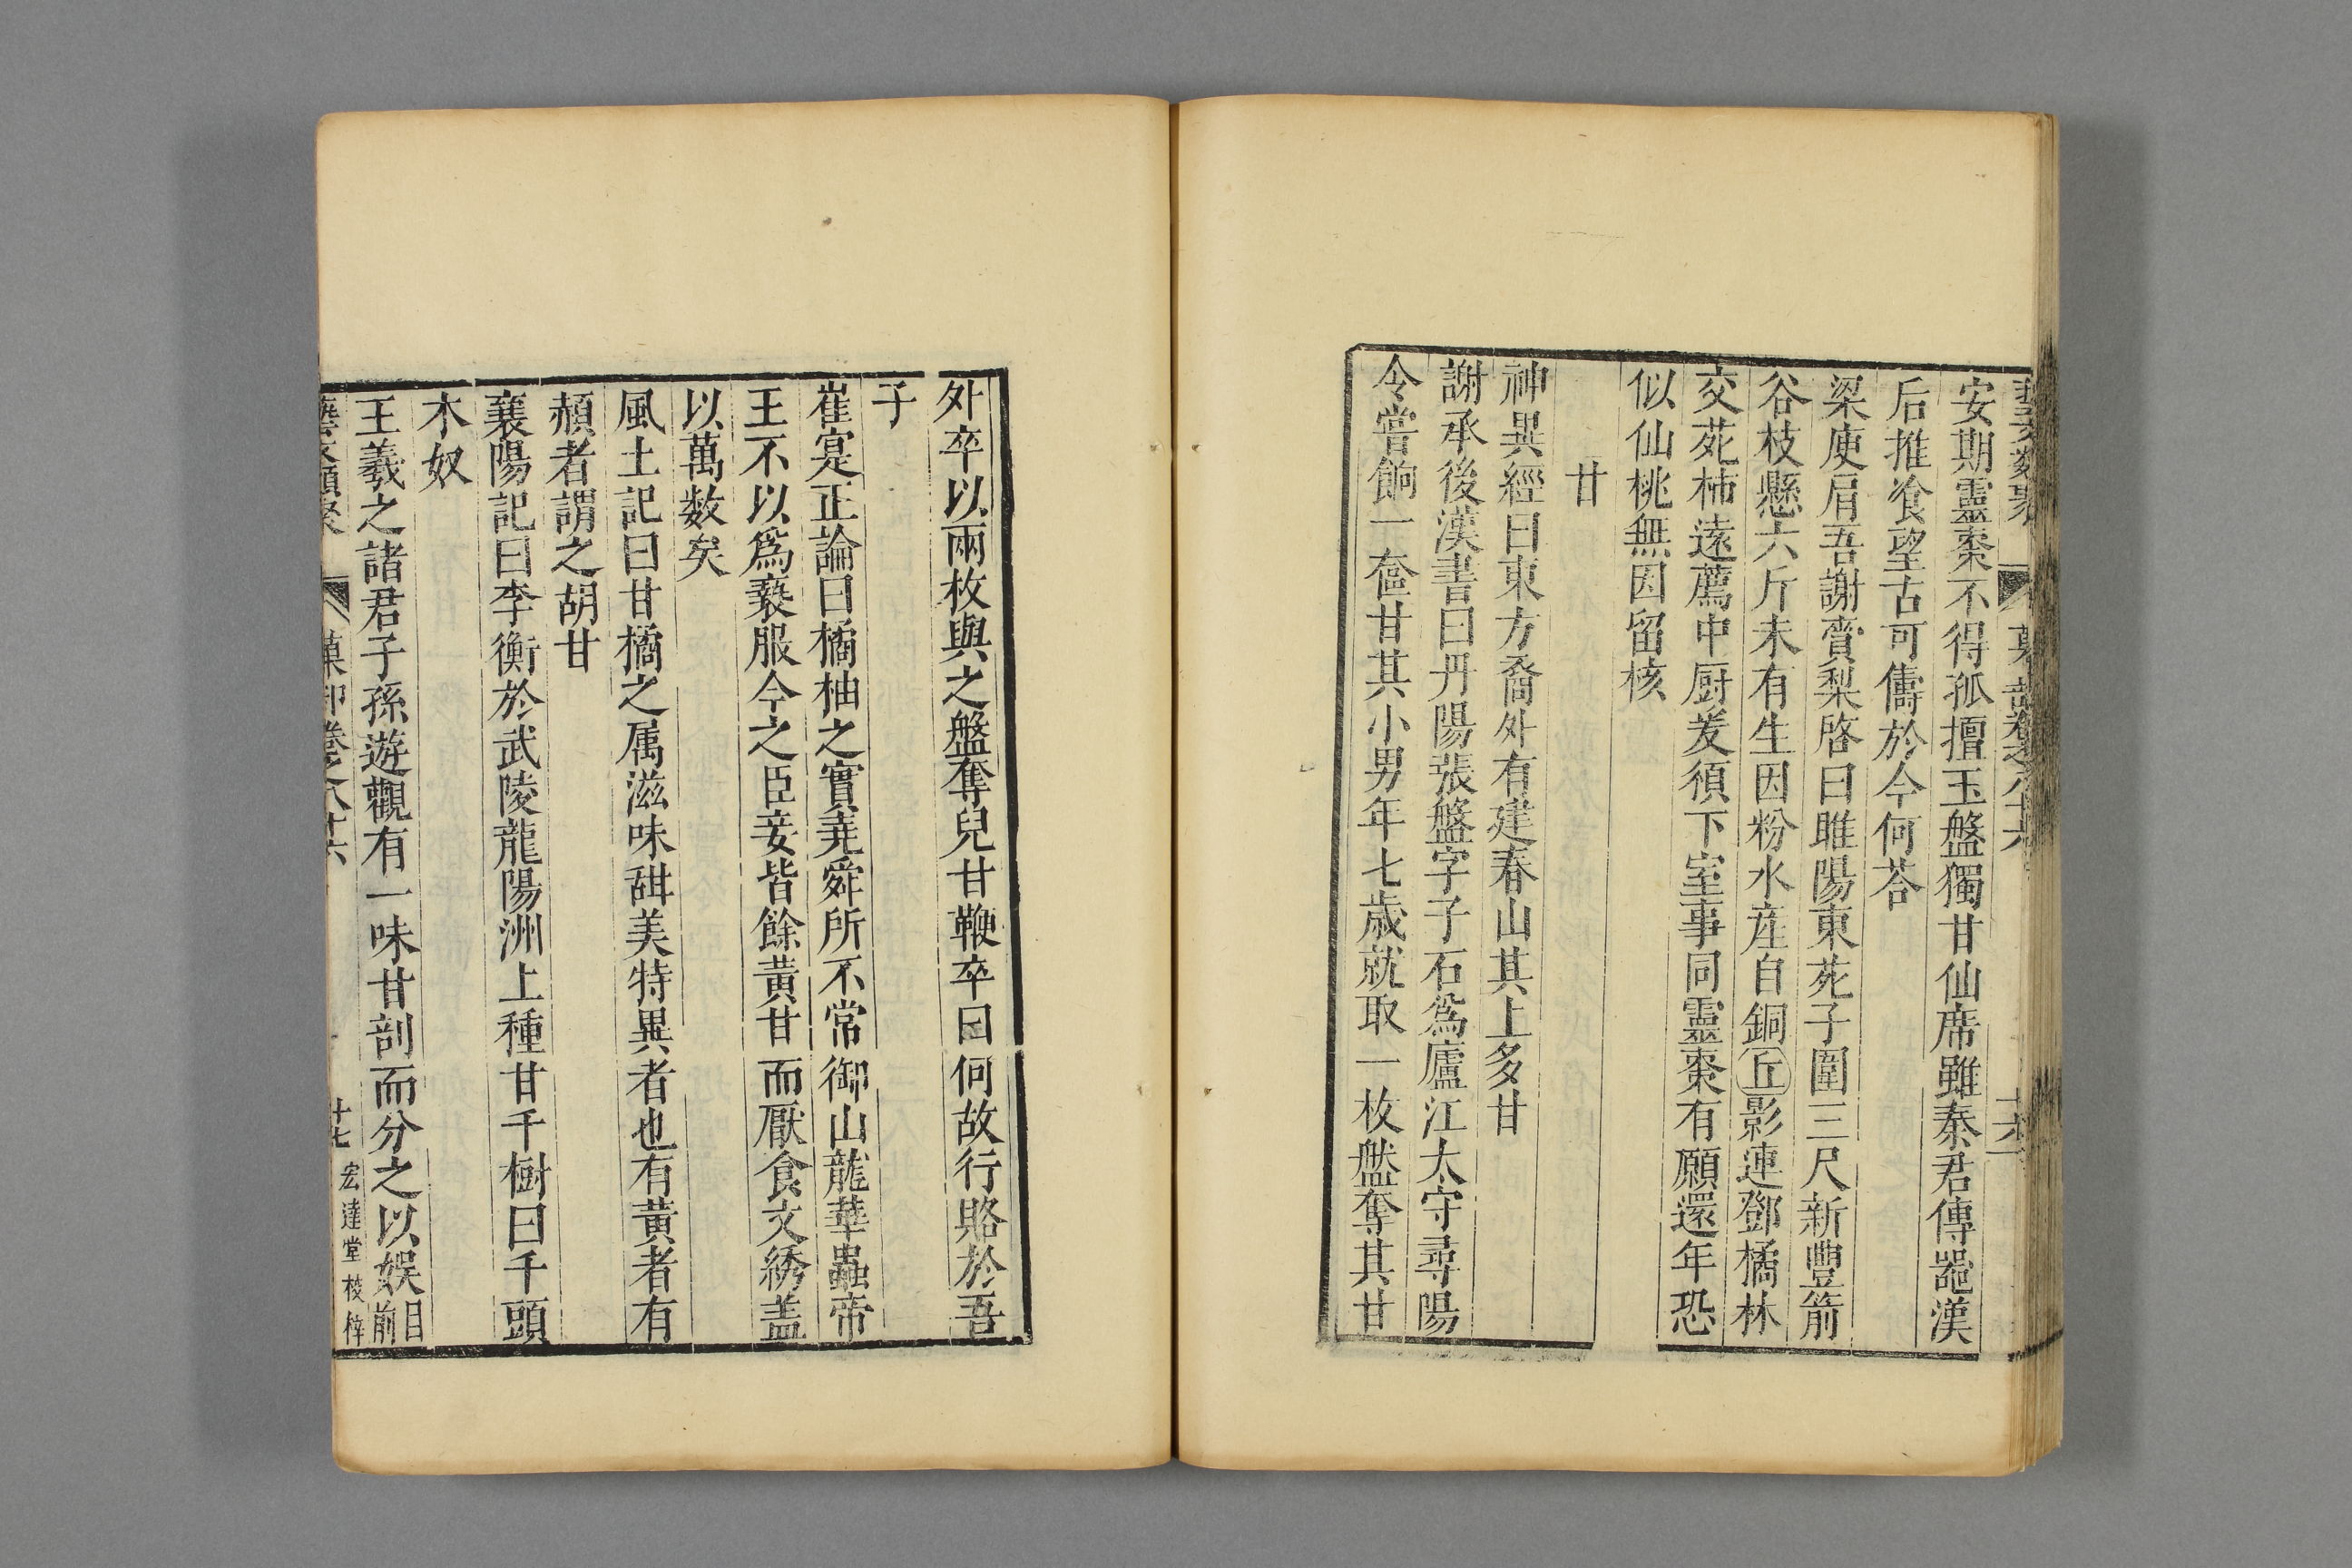 安期靈棗不得孤擅玉盤獨甘仙席雖秦君傳器漢
后推飡望古可儔於今何荅
梁庾肩吾謝賚梨啓曰睢陽東苑子圍三尺新豐箭
谷枝懸六斤未有生因粉水産自銅丘影連鄧橘林
交苑柿遠薦中厨爰頒下室事同靈棗有願還年恐
似仙桃無因留核
甘
神異經曰東方裔外有建春山其上多甘
謝承後漢書曰丹陽張盤字子石爲廬江太守尋陽
令嘗餉一奩甘其小男年七歲就取一枚盤奪其甘
外卒以兩枚與之盤奪兒甘鞭卒曰何故行賂於吾
子
崔寔正論曰橘柚之實堯舜所不常御山龍華蟲帝
王不以爲褻服今之臣妾皆餘黃甘而厭食文綉蓋
以萬數矣
風土記曰甘橘之属滋味甜美特異者也有黃者有
頳者謂之胡甘
襄陽記曰李衡於武陵龍陽洲上種甘千樹曰千頭
木奴
王羲之諸君子孫遊觀有一味甘剖而分之以娛目前
藝文類聚 菓部卷之八十六 十七 宏達堂校梓